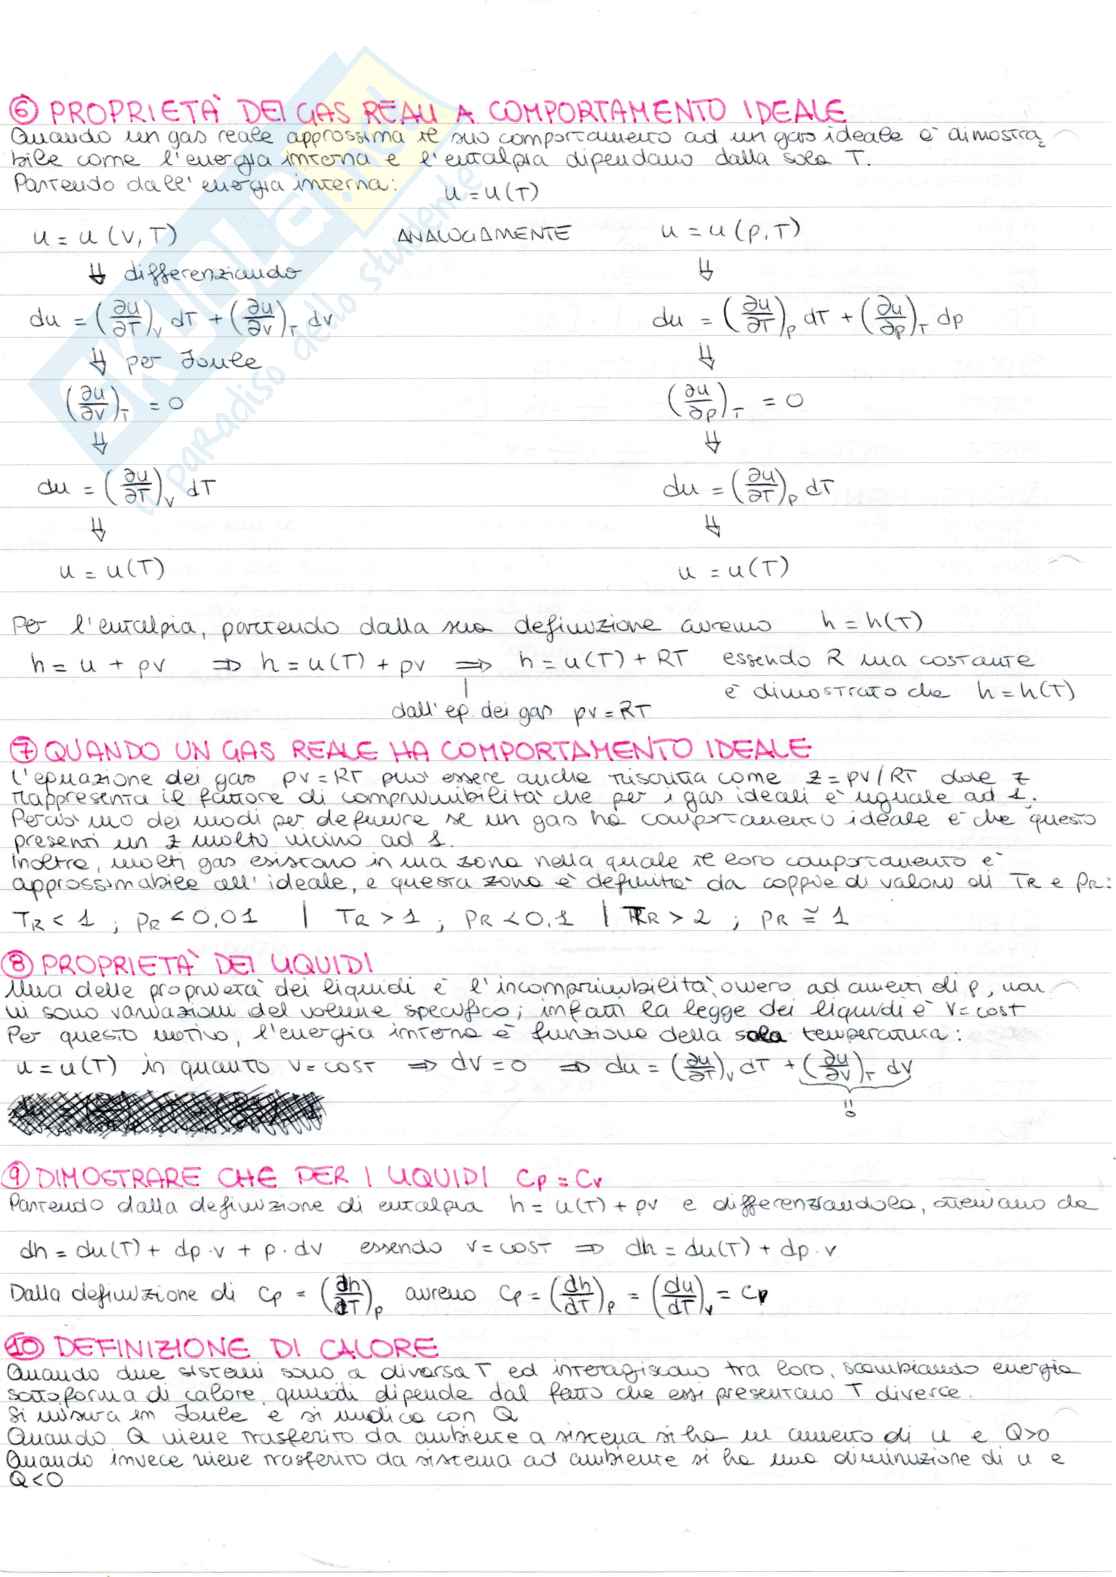 ⑥ PROPRIETÀ DEI GAS REALI A COMPORTAMENTO IDEALE
Quando un gas reale approssima il suo comportamento ad un gas ideale è dimostra
bile come l'energia interna e l'entalpia dipendano dalla sola T.
Partendo dall'energia interna: u = u(T)
u = u (v, T) ANALOGAMENTE u = u (p, T)
⇓ differenziando ⇓
du = (∂u/∂T)v dT + (∂u/∂v)T dv du = (∂u/∂T)p dT + (∂u/∂p)T dp
⇓ per Joule ⇓
(∂u/∂v)T = 0 (∂u/∂p)T = 0
⇓ ⇓
du = (∂u/∂T)v dT du = (∂u/∂T)p dT
⇓ ⇓
u = u(T) u = u(T)
Per l'entalpia, partendo dalla sua definizione avremo h = h(T)
h = u + pv ⇒ h = u(T) + pv ⇒ h = u(T) + RT essendo R una costante
è dimostrato che h = h(T)
dall'eq dei gas pv = RT
⑦ QUANDO UN GAS REALE HA COMPORTAMENTO IDEALE
L'equazione dei gas pv = RT può essere anche riscritta come z = pv/RT dove z
rappresenta il fattore di comprimibilità che per i gas ideali è uguale ad 1.
Perciò uno dei modi per definire se un gas ha comportamento ideale è che questo
presenti un z molto vicino ad 1.
Inoltre, molti gas esistono in una zona nella quale il loro comportamento è
approssimabile all'ideale, e questa zona è definita da coppie di valori di TR e pR:
TR < 1 ; pR < 0,01 | TR > 1 ; pR < 0,1 | TR > 2 ; pR ≅ 1
⑧ PROPRIETÀ DEI LIQUIDI
Una delle proprietà dei liquidi è l'incomprimibilità, ovvero ad aumenti di p, non
vi sono variazioni del volume specifico; infatti la legge dei liquidi è v = cost
Per questo motivo, l'energia interna è funzione della sola temperatura:
u = u(T) in quanto v = cost ⇒ dv = 0 ⇒ du = (∂u/∂T)v dT + (∂u/∂v)T dv
= 0
⑨ DIMOSTRARE CHE PER I LIQUIDI Cp = Cv
Partendo dalla definizione di entalpia h = u(T) + pv e differenziandola, otteniamo che
dh = du(T) + dp · v + p · dv essendo v = cost ⇒ dh = du(T) + dp · v
Dalla definizione di Cp = (dh/dT)p avremo Cp = (dh/dT)p = (du/dT)v = Cv
⑩ DEFINIZIONE DI CALORE
Quando due sistemi sono a diversa T ed interagiscono tra loro, scambiando energia
sottoforma di calore, quindi dipende dal fatto che essi presentano T diverse.
Si misura in Joule e si indica con Q
Quando Q viene trasferito da ambiente a sistema si ha un aumento di u e Q>0
Quando invece viene trasferito da sistema ad ambiente si ha una diminuzione di u e
Q<0
SKUOLA.NET
il paradiso dello studente